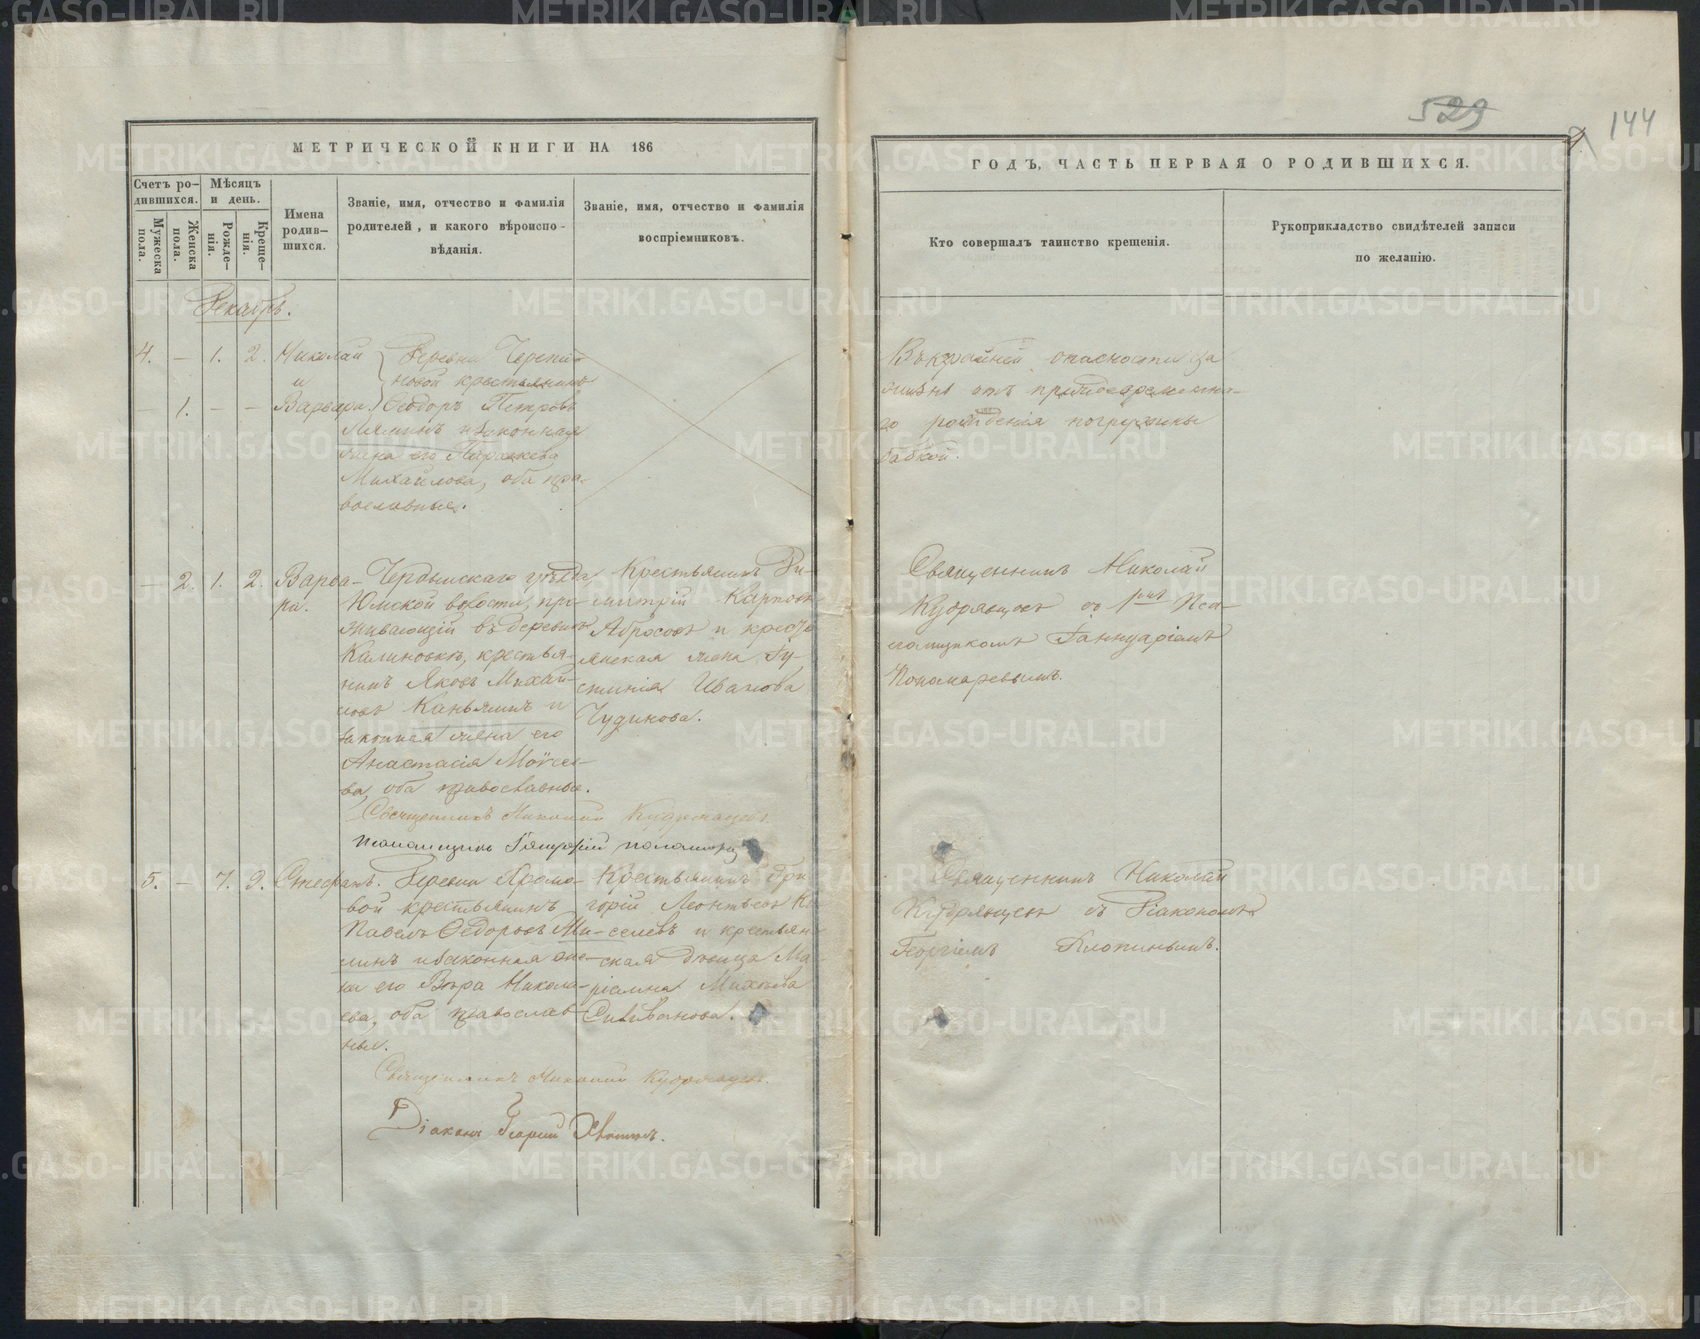 529
144
МЕТРИЧЕСКОЙ КНИГИ НА 186
Счетъ ро-
дившихся.
Мужеска
пола.
Женска
пола.
Мѣсяцъ
и день.
Рожде-
нія.
Креще-
нія.
Имена
родив-
шихся.
Званіе, имя, отчество и фамилія
родителей, и какого вѣроиспо-
вѣданія.
Званіе, имя, отчество и фамилія
воспріемниковъ.
ГОДЪ, ЧАСТЬ ПЕРВАЯ О РОДИВШИХСЯ.
Кто совершалъ таинство крещенія.
Рукоприкладство свидѣтелей записи
по желанію.
Декабрь.
4. — 1. 2. Николай
и
— 1. — — Варвара.
Деревни
новой крестьянинъ
Ѳеодоръ Петровъ
и законная
жена его Параскева
Михайлова, оба пра-
вославные.
Въ крайней опасности за
жизнь отъ преждевременна-
го рожденія погружены
бабкой.
— 2. 1. 2. Варва-
ра.
Чердынскаго уѣзда
Юмской волости, про-
живающій въ деревнѣ
Калиновкѣ, крестья-
нинъ Яковъ Михай-
ловъ Каньяминъ и
законная жена его
Анастасія Моѵсее-
ва, оба православные.
Крестьянинъ Ди-
митрій Карповъ
Абросовъ и кресть-
янская жена Іу-
стинія Иванова
Чудинова.
Священникъ Николай
Кудрявцевъ съ 1мъ Пса-
ломщикомъ Іаннуаріемъ
Пономаревымъ.
Священникъ Николай Кудрявцевъ.
Псаломщикъ Іаннуарій Пономаревъ
5. — 7. 9. Стефанъ.
Деревни
вой крестьянинъ
Павелъ Ѳедоровъ Ми-
линъ и законная же-
на его Вѣра Никола-
ева, оба православ-
ные.
Крестьянинъ Гри-
горій Леонтьевъ Ки-
селевъ и крестьян-
ская дѣвица Ма-
ріамна Михѣева
Силиванова.
Священникъ Николай
Кудрявцевъ съ Діакономъ
Георгіемъ
Священникъ Николай Кудрявцевъ.
Діаконъ Георгій